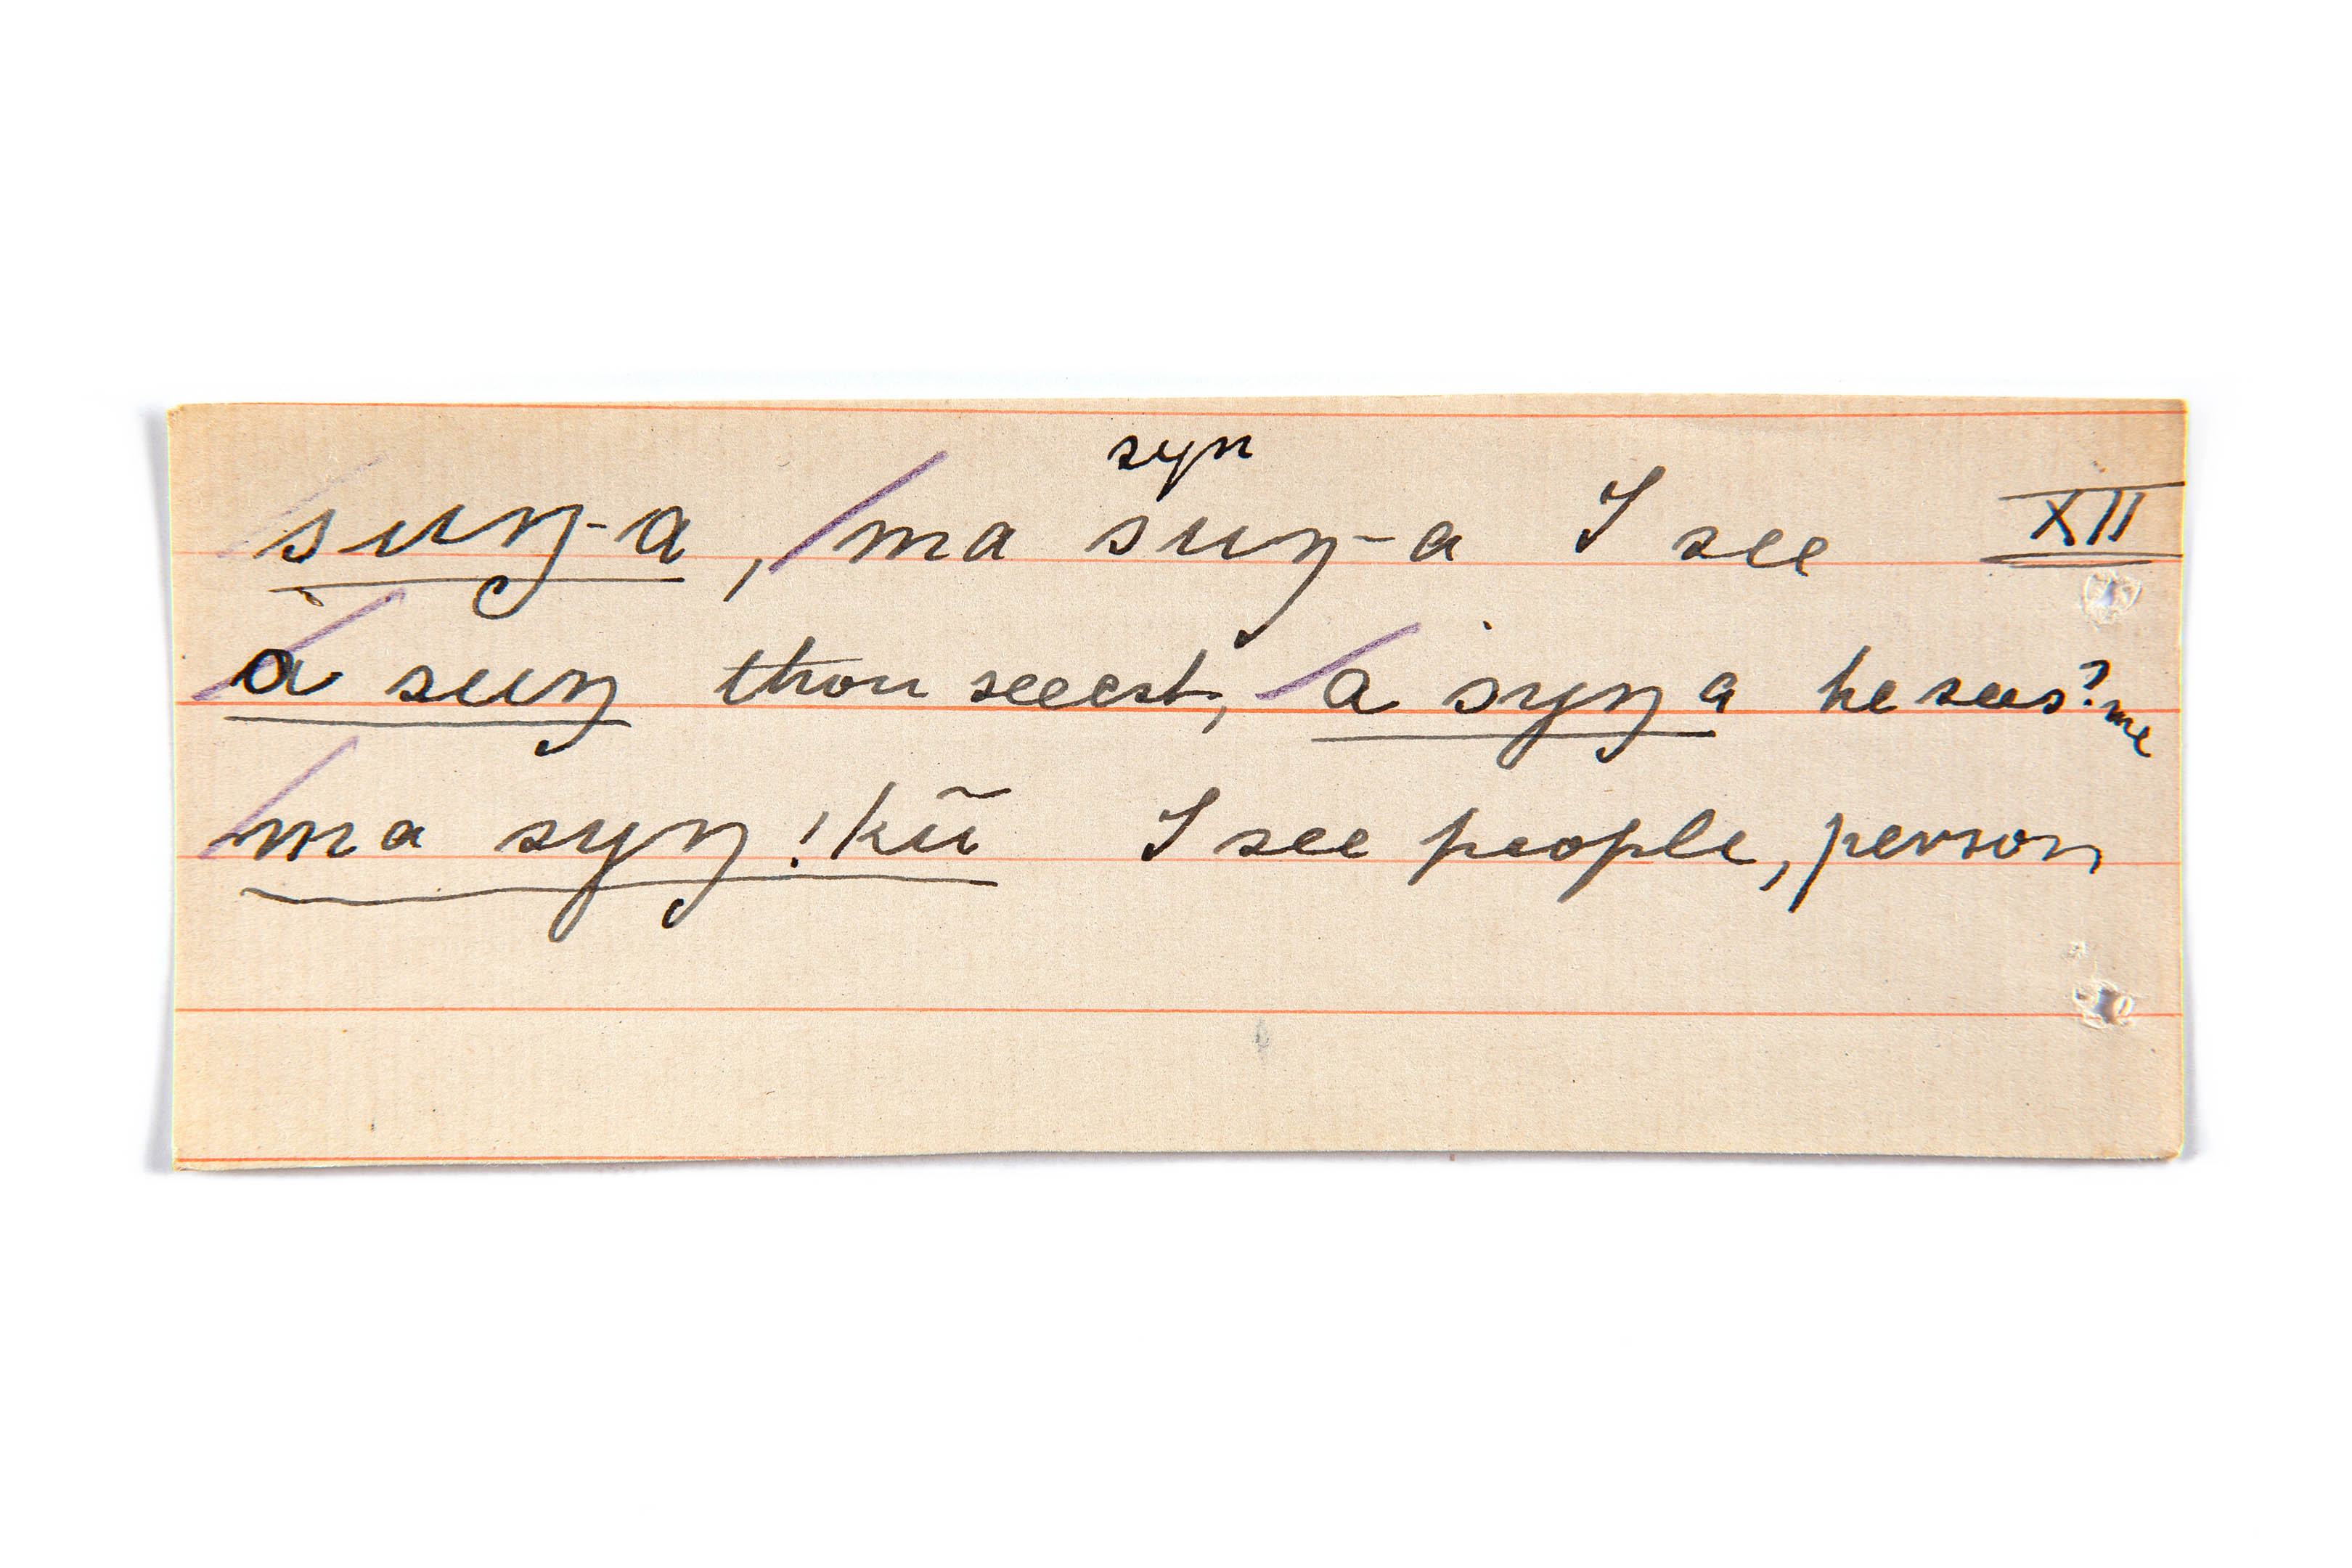 syn
suŋ-a, ma suŋ-a I see XII
à suŋ thou seest, a syŋ a he sees? me
ma syŋ !kũ I see people, person